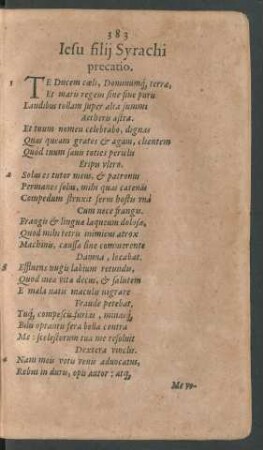 383
Iesu filij Syrachi
precatio.
1 TE Ducem cœli, Dominumq́; terræ,
Et maris regem sine fine puru
Laudibus tollam super alta summi
Aetheris astra.
Et tuum nomen celebrabo, dignas
Quas queam grates & agam, clientem
Quod tuum saum toties periclis
Eripis vltro.
2 Solus es tutor meus, & patronus
Permanes solus, mihi quas catenas
Compedum struxit ferus hostis mâ
Cum nece frangis.
Frangis & linguæ laqueum dolosæ,
Quod mihi tetris inimicus atrox
Machinis, caussa sine comminente
Damna, locabat.
3 Effluens nugis labium retundis,
Quod mea vita decus, & salutem
E mala natis macula nigrare
Fraude petebat.
Tuq́, compescis furias, minasq́,
Bile optantis fera bella contra
Me: scelestorum tua me resoluit
Dextera vinclis.
4 Nam meus veris venis aduocatus,
Rebus in duris, opis autor: atq́,
Me pe-